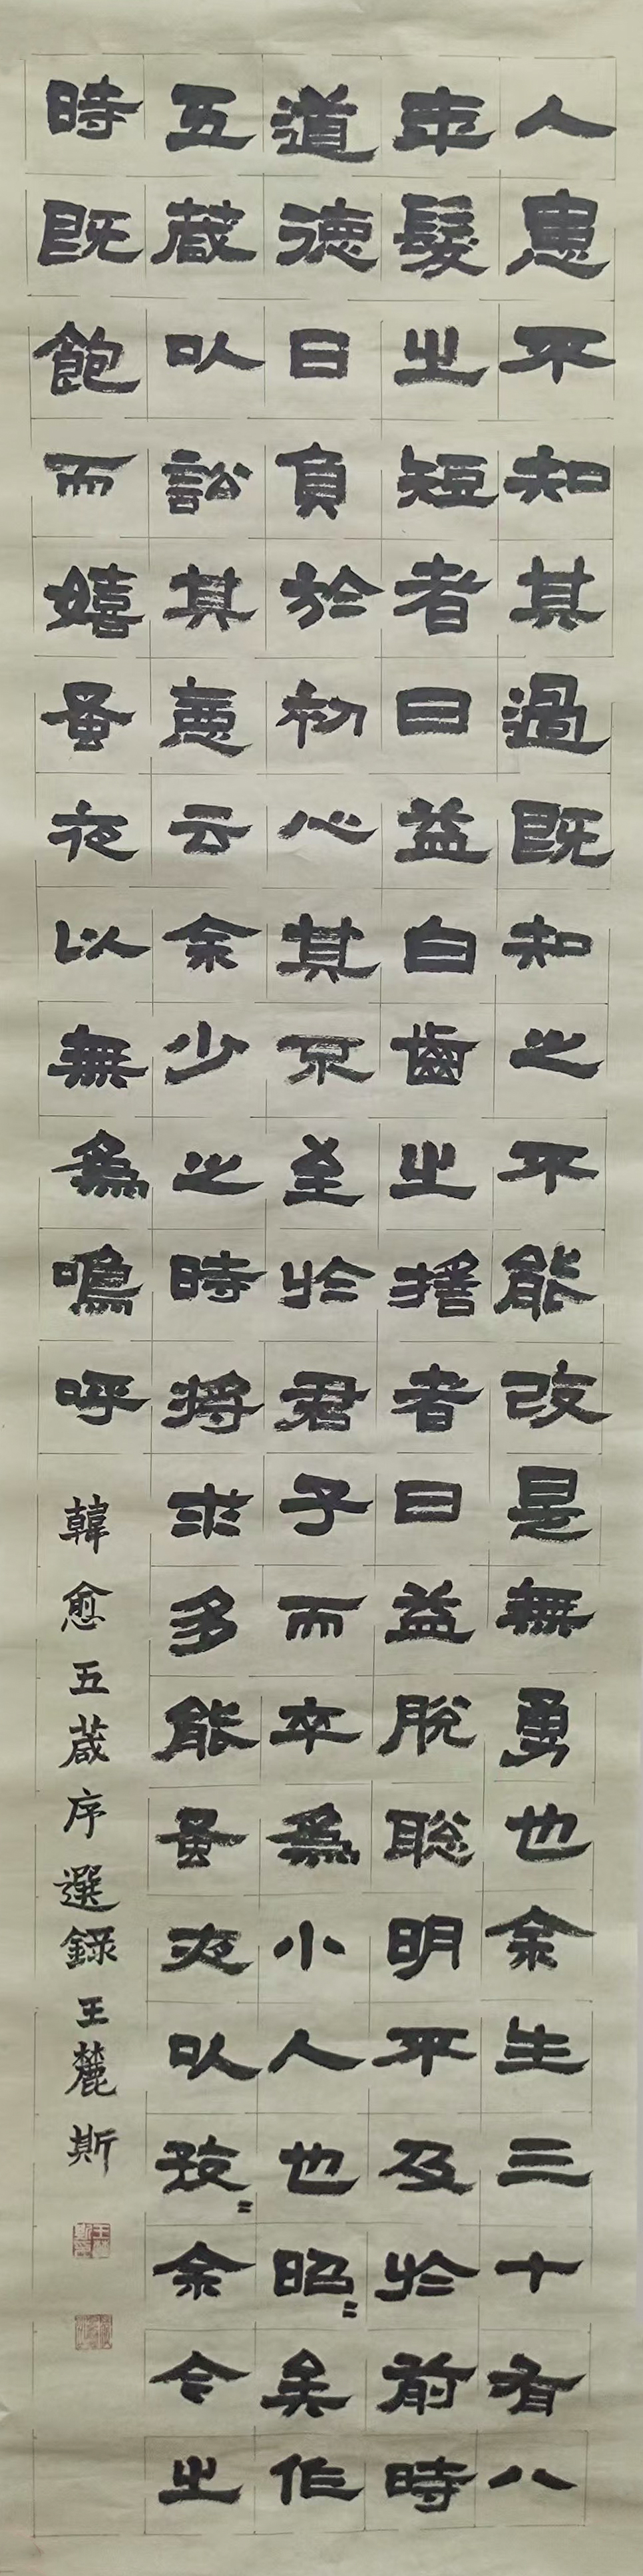 人患不知其過既知之不能改是無勇也余生三十有八
年髮之短者日益白齒之搖者日益脫聰明不及於前時
道德日負於初心其不至於君子而卒爲小人也昭〻矣作
五箴以訟其惡云余少之時將求多能蚤夜以孜〻余今之
時既飽而嬉蚤夜以無爲嗚呼
韓愈五箴序選錄王麓斯